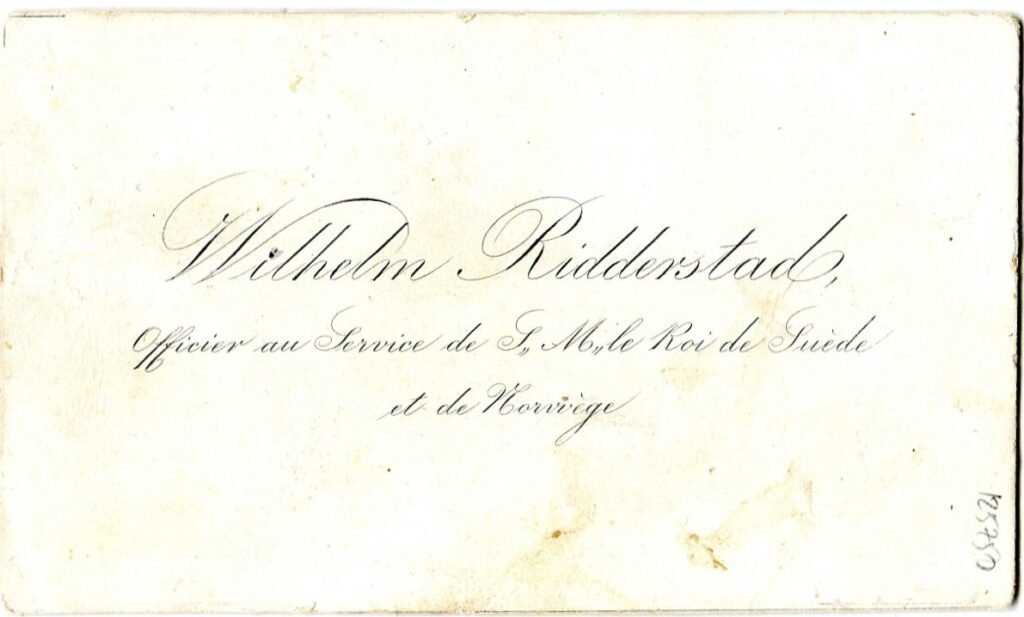 Wilhelm Ridderstad,
Officier au Service de S„ M„ le Roi de Suède
et de Norvège
125750